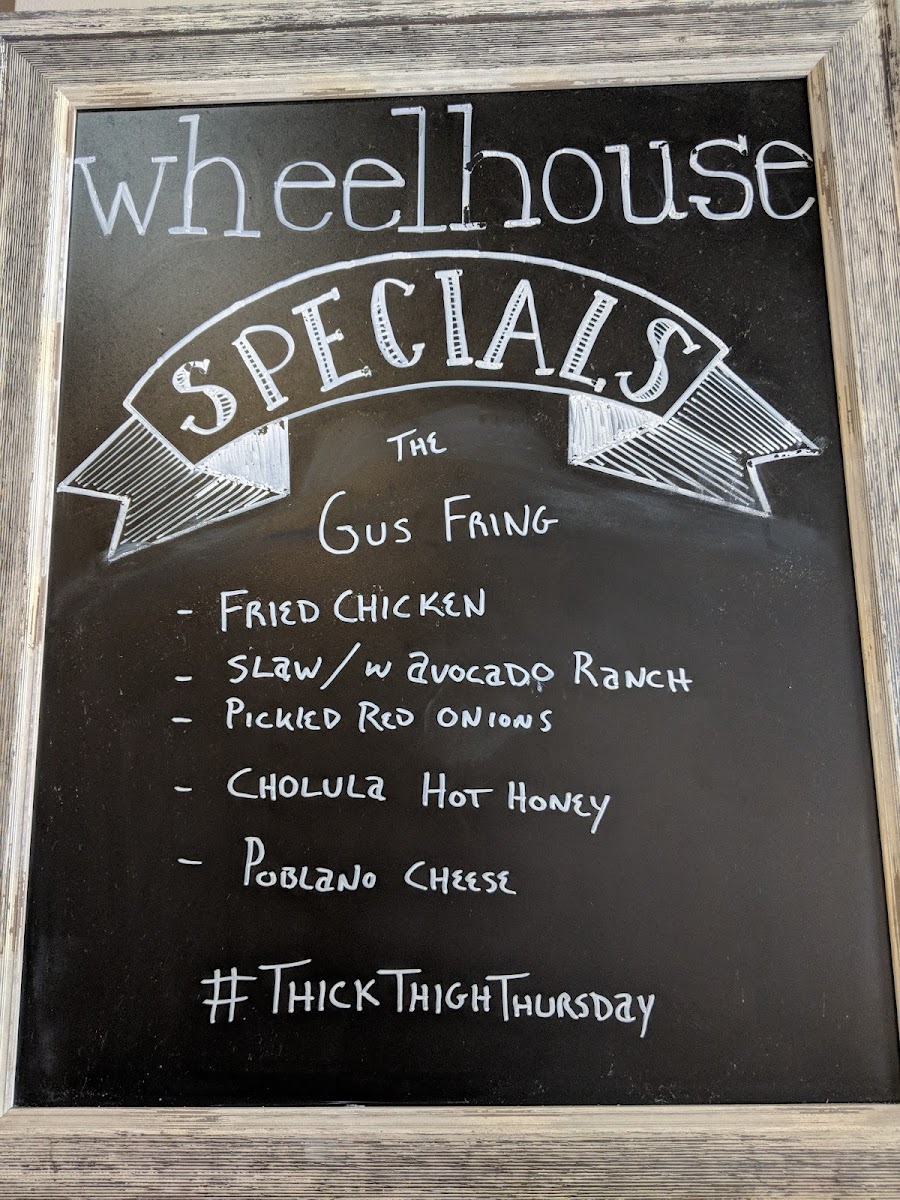 wheelhouse
SPECIALS
THE
GUS FRING
- FRIED CHICKEN
- SLAW/W AVOCADO RANCH
- PICKLED RED ONIONS
- CHOLULA HOT HONEY
- POBLANO CHEESE
#THICKTHIGHTHURSDAY